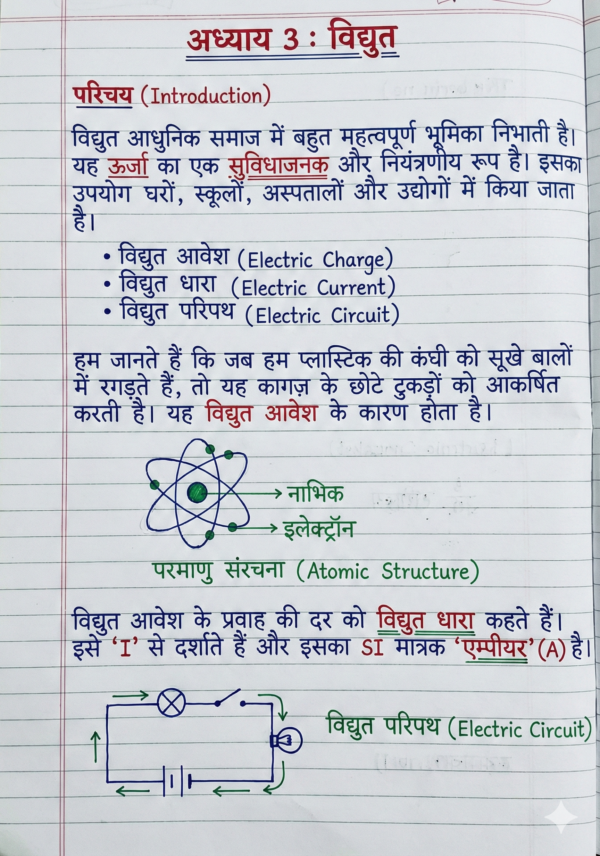 अध्याय 3 : विद्युत
परिचय (Introduction)
विद्युत आधुनिक समाज में बहुत महत्वपूर्ण भूमिका निभाती है।
यह ऊर्जा का एक सुविधाजनक और नियंत्रणीय रूप है। इसका
उपयोग घरों, स्कूलों, अस्पतालों और उद्योगों में किया जाता
है।
• विद्युत आवेश (Electric Charge)
• विद्युत धारा (Electric Current)
• विद्युत परिपथ (Electric Circuit)
हम जानते हैं कि जब हम प्लास्टिक की कंघी को सूखे बालों
में रगड़ते हैं, तो यह कागज़ के छोटे टुकड़ों को आकर्षित
करती है। यह विद्युत आवेश के कारण होता है।
नाभिक
इलेक्ट्रॉन
परमाणु संरचना (Atomic Structure)
विद्युत आवेश के प्रवाह की दर को विद्युत धारा कहते हैं।
इसे ‘I’ से दर्शाते हैं और इसका SI मात्रक ‘एम्पीयर’ (A) है।
विद्युत परिपथ (Electric Circuit)